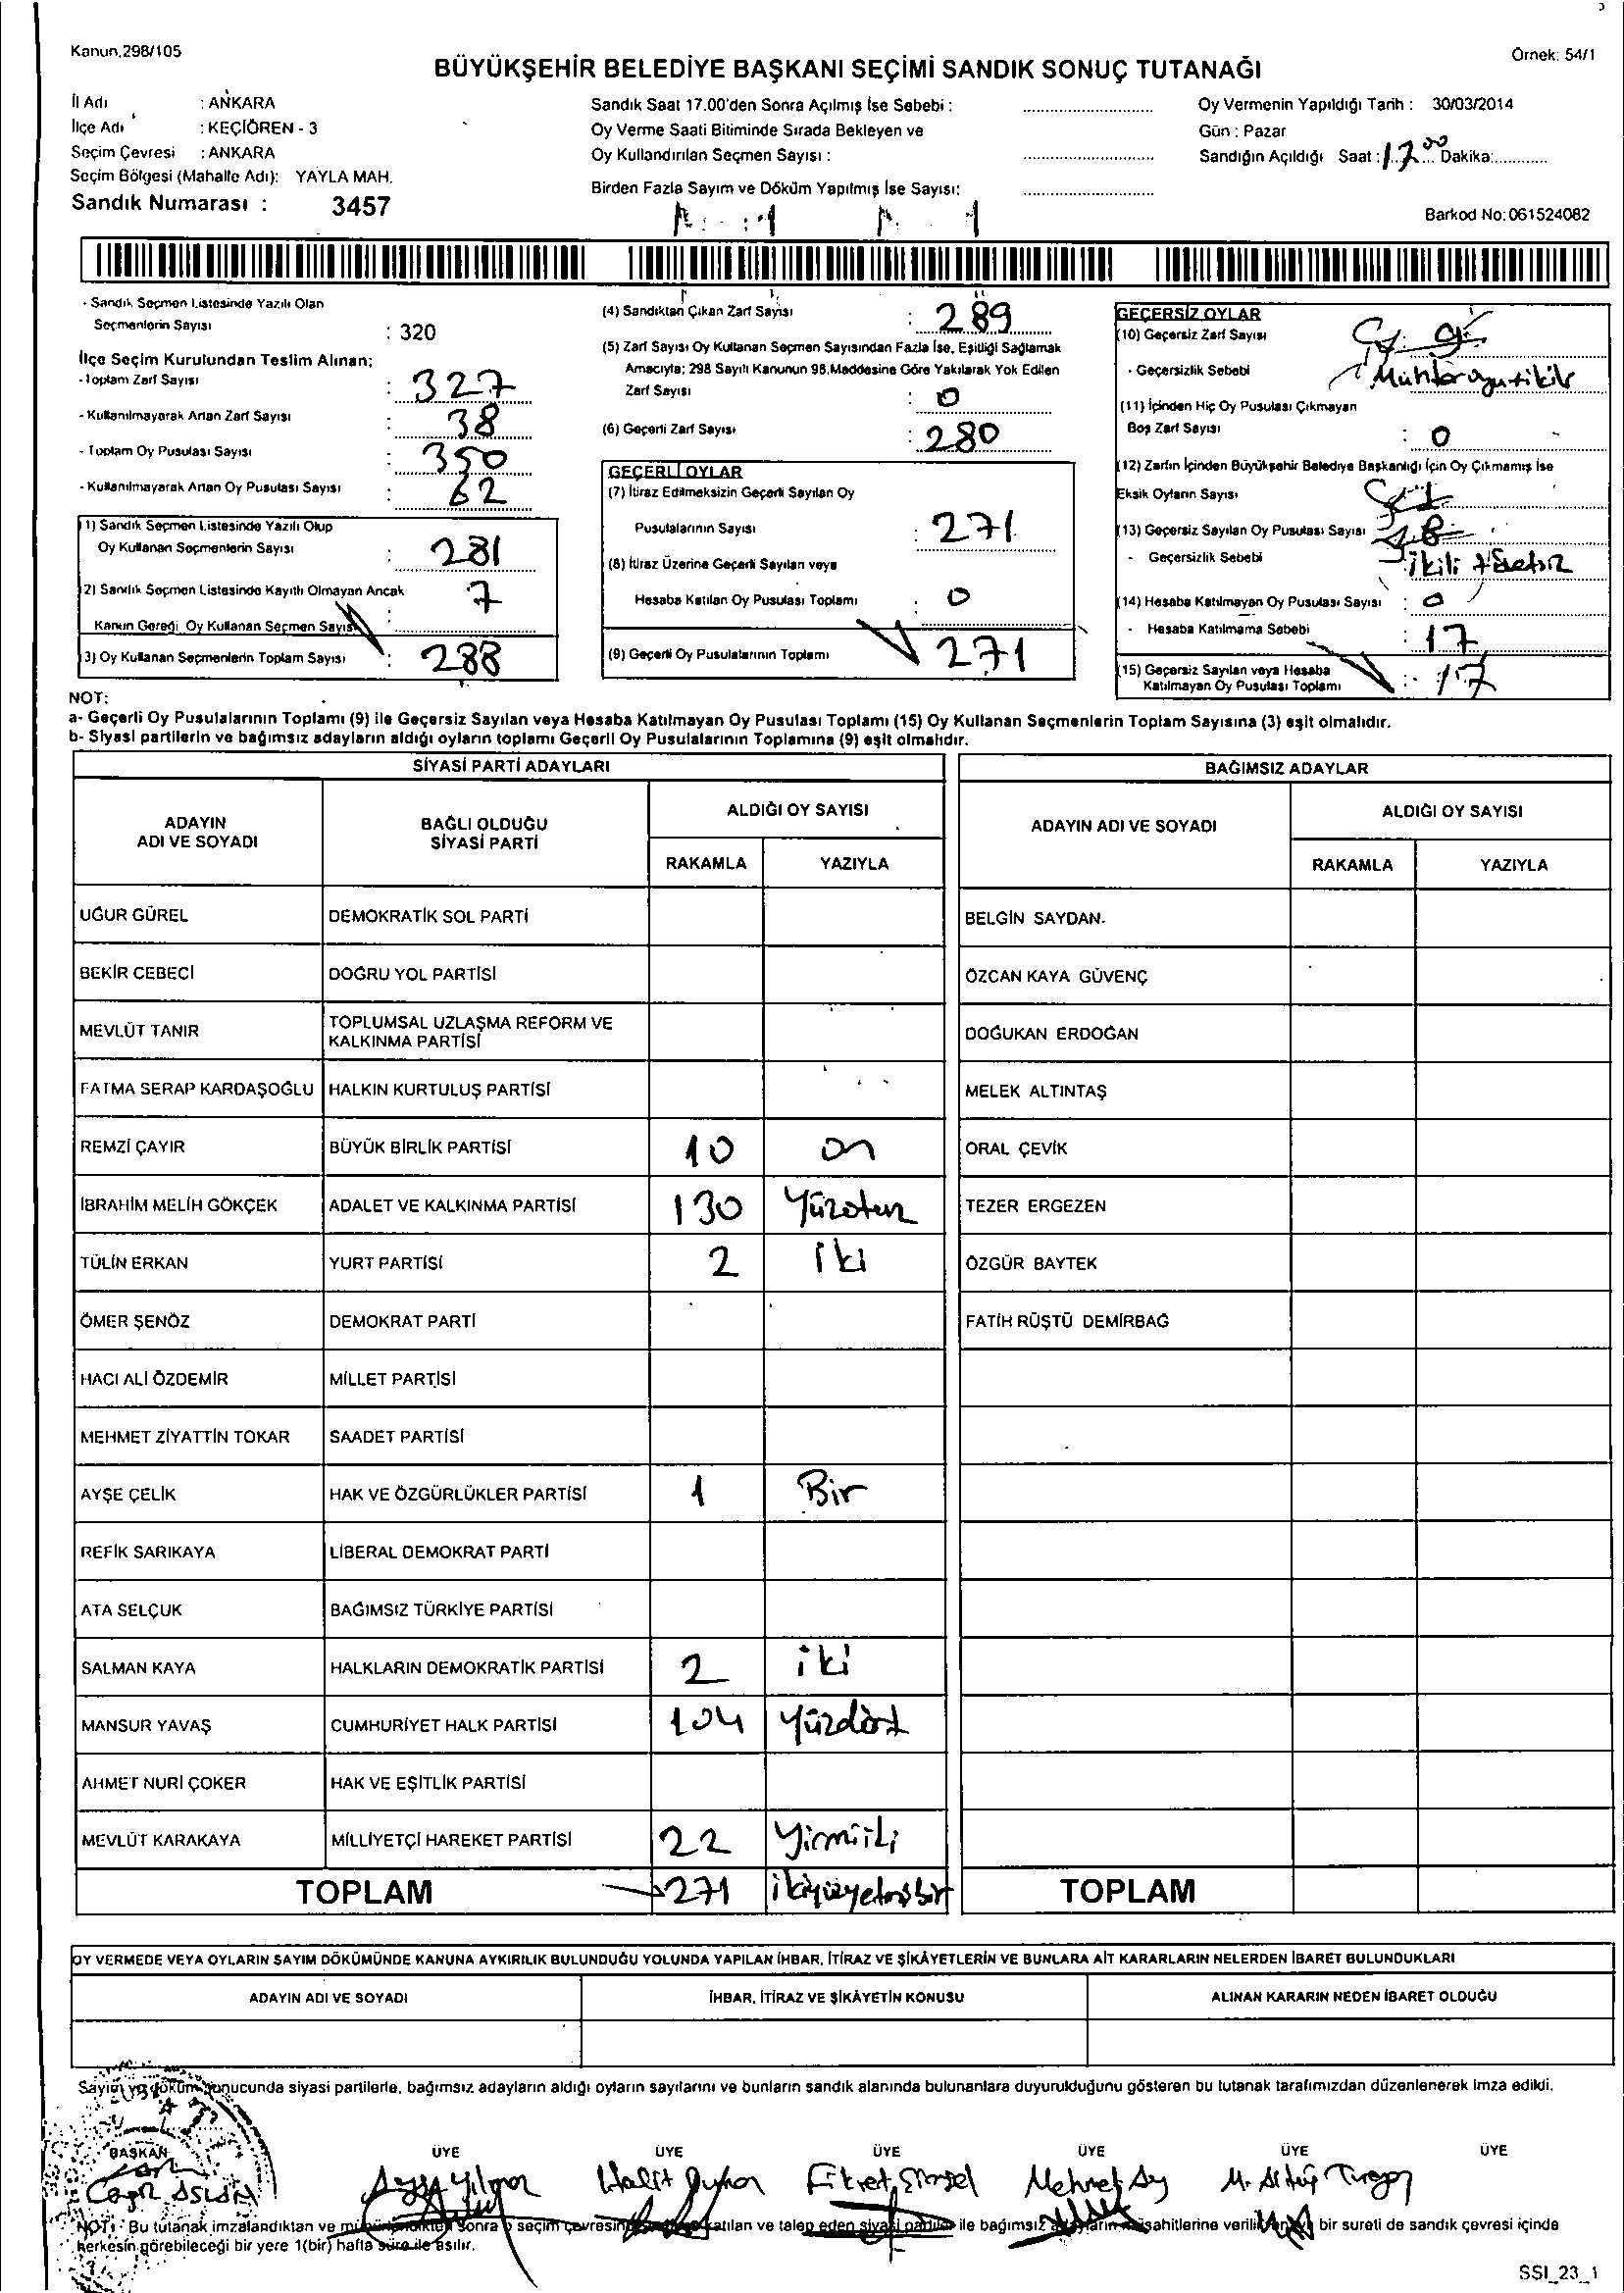 Kanun.298/105
Örnek: 54/1
BÜYÜKŞEHİR BELEDİYE BAŞKANI SEÇİMİ SANDIK SONUÇ TUTANAĞI
İl Adı : ANKARA
İlçe Adı : KEÇİÖREN - 3
Seçim Çevresi : ANKARA
Seçim Bölgesi (Mahalle Adı): YAYLA MAH.
Sandık Numarası : 3457
Sandık Saat 17.00'den Sonra Açılmış İse Sebebi :
Oy Verme Saati Bitiminde Sırada Bekleyen ve
Oy Kullandırılan Seçmen Sayısı :
Birden Fazla Sayım ve Döküm Yapılmış İse Sayısı:
Oy Vermenin Yapıldığı Tarih : 30/03/2014
Gün : Pazar
Sandığın Açıldığı Saat : 17 00 Dakika:
Barkod No: 061524082
- Sandık Seçmen Listesinde Yazılı Olan
Seçmenlerin Sayısı : 320
İlçe Seçim Kurulundan Teslim Alınan;
- Toplam Zarf Sayısı : 327
- Kullanılmayarak Artan Zarf Sayısı : 38
- Toplam Oy Pusulası Sayısı : 350
- Kullanılmayarak Artan Oy Pusulası Sayısı : 62
1) Sandık Seçmen Listesinde Yazılı Olup
Oy Kullanan Seçmenlerin Sayısı : 281
2) Sandık Seçmen Listesinde Kayıtlı Olmayan Ancak
Kanun Gereği Oy Kullanan Seçmen Sayısı 7
3) Oy Kullanan Seçmenlerin Toplam Sayısı : 288
(4) Sandıktan Çıkan Zarf Sayısı : 289
(5) Zarf Sayısı Oy Kullanan Seçmen Sayısından Fazla İse, Eşitliği Sağlamak
Amacıyla; 298 Sayılı Kanunun 98.Maddesine Göre Yakılarak Yok Edilen
Zarf Sayısı : 0
(6) Geçerli Zarf Sayısı : 280
GEÇERLİ OYLAR
(7) İtiraz Edilmeksizin Geçerli Sayılan Oy
Pusulalarının Sayısı : 271
(8) İtiraz Üzerine Geçerli Sayılan veya
Hesaba Katılan Oy Pusulası Toplamı : 0
(9) Geçerli Oy Pusulalarının Toplamı 271
GEÇERSİZ OYLAR
(10) Geçersiz Zarf Sayısı
- Geçersizlik Sebebi
(11) İçinden Hiç Oy Pusulası Çıkmayan
Boş Zarf Sayısı : 0
(12) Zarfın İçinden Büyükşehir Belediye Başkanlığı İçin Oy Çıkmamış İse
Eksik Oyların Sayısı
(13) Geçersiz Sayılan Oy Pusulası Sayısı
- Geçersizlik Sebebi
(14) Hesaba Katılmayan Oy Pusulası Sayısı : 0
- Hesaba Katılmama Sebebi : 17
(15) Geçersiz Sayılan veya Hesaba
Katılmayan Oy Pusulası Toplamı : 17
NOT:
a- Geçerli Oy Pusulalarının Toplamı (9) ile Geçersiz Sayılan veya Hesaba Katılmayan Oy Pusulası Toplamı (15) Oy Kullanan Seçmenlerin Toplam Sayısına (3) eşit olmalıdır.
b- Siyasi partilerin ve bağımsız adayların aldığı oyların toplamı Geçerli Oy Pusulalarının Toplamına (9) eşit olmalıdır.
SİYASİ PARTİ ADAYLARI
ADAYIN ADI VE SOYADI
BAĞLI OLDUĞU SİYASİ PARTİ
ALDIĞI OY SAYISI
RAKAMLA YAZIYLA
UĞUR GÜREL DEMOKRATİK SOL PARTİ
BEKİR CEBECİ DOĞRU YOL PARTİSİ
MEVLÜT TANIR TOPLUMSAL UZLAŞMA REFORM VE KALKINMA PARTİSİ
FATMA SERAP KARDAŞOĞLU HALKIN KURTULUŞ PARTİSİ
REMZİ ÇAYIR BÜYÜK BİRLİK PARTİSİ 10 on
İBRAHİM MELİH GÖKÇEK ADALET VE KALKINMA PARTİSİ 130 Yüzotuz
TÜLİN ERKAN YURT PARTİSİ 2 iki
ÖMER ŞENÖZ DEMOKRAT PARTİ
HACI ALİ ÖZDEMİR MİLLET PARTİSİ
MEHMET ZİYATTİN TOKAR SAADET PARTİSİ
AYŞE ÇELİK HAK VE ÖZGÜRLÜKLER PARTİSİ 1 Bir
REFİK SARIKAYA LİBERAL DEMOKRAT PARTİ
ATA SELÇUK BAĞIMSIZ TÜRKİYE PARTİSİ
SALMAN KAYA HALKLARIN DEMOKRATİK PARTİSİ 2 iki
MANSUR YAVAŞ CUMHURİYET HALK PARTİSİ 104 Yüzdört
AHMET NURİ ÇOKER HAK VE EŞİTLİK PARTİSİ
MEVLÜT KARAKAYA MİLLİYETÇİ HAREKET PARTİSİ 22 Yirmiiki
TOPLAM 271 ikiyüzyetmişbir
BAĞIMSIZ ADAYLAR
ADAYIN ADI VE SOYADI
ALDIĞI OY SAYISI
RAKAMLA YAZIYLA
BELGİN SAYDAN
ÖZCAN KAYA GÜVENÇ
DOĞUKAN ERDOĞAN
MELEK ALTINTAŞ
ORAL ÇEVİK
TEZER ERGEZEN
ÖZGÜR BAYTEK
FATİH RÜŞTÜ DEMİRBAĞ
TOPLAM
OY VERMEDE VEYA OYLARIN SAYIM DÖKÜMÜNDE KANUNA AYKIRILIK BULUNDUĞU YOLUNDA YAPILAN İHBAR, İTİRAZ VE ŞİKÂYETLERİN VE BUNLARA AİT KARARLARIN NELERDEN İBARET BULUNDUKLARI
ADAYIN ADI VE SOYADI İHBAR, İTİRAZ VE ŞİKÂYETİN KONUSU ALINAN KARARIN NEDEN İBARET OLDUĞU
Sayım ve döküm sonucunda siyasi partilerle, bağımsız adayların aldığı oyların sayılarını ve bunların sandık alanında bulunanlara duyurulduğunu gösteren bu tutanak tarafımızdan düzenlenerek imza edildi.
BAŞKAN ÜYE ÜYE ÜYE ÜYE ÜYE ÜYE
ASLAN Yılmaz Halit Fikret Şimşel Mehmet Ay M.
NOT: Bu tutanak imzalandıktan ve sonra seçim çevresinde katılan ve talep eden siyasi partiler ile bağımsız adayların müşahitlerine bir sureti de sandık çevresi içinde
herkesin görebileceği bir yere 1(bir) hafta süre ile asılır.
SSI_23_1